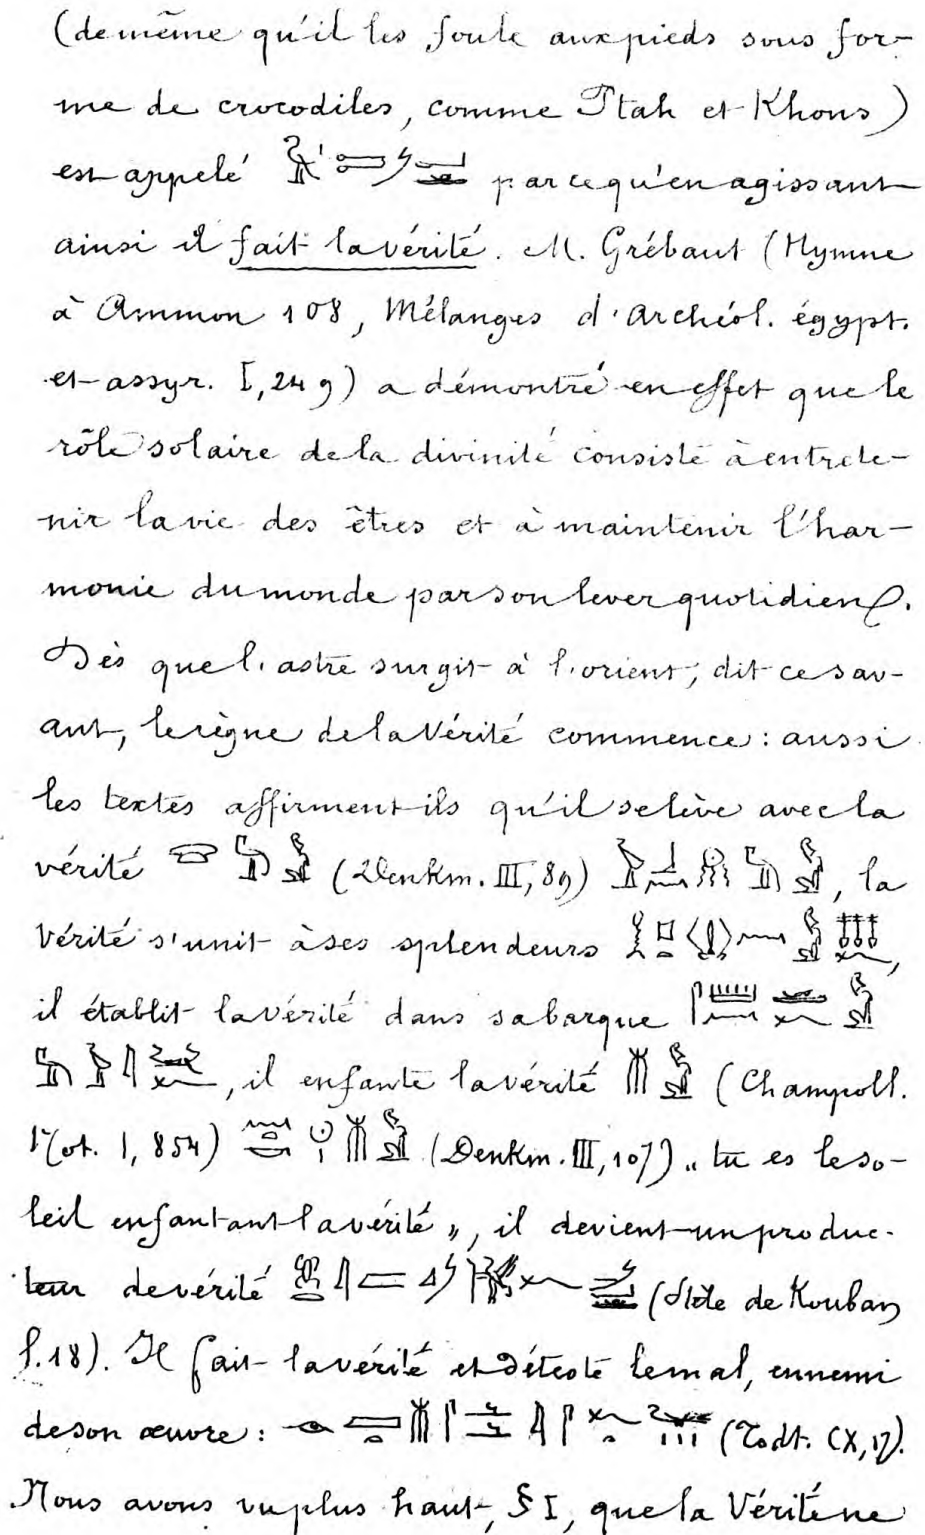 (de même qu'il les foule aux pieds sous for-
me de crocodiles, comme Ptah et Khons)
est appelé parcequ'en agissant
ainsi il fait la vérité. M. Grébaut (Hymne
à Ammon 108, Mélanges d'Archéol. égypt.
et assyr. I, 249) a démontré en effet que le
rôle solaire de la divinité consiste à entrete-
nir la vie des êtres et à maintenir l'har-
monie du monde par son lever quotidien.
Dès que l'astre surgit à l'orient, dit ce sav-
ant, le règne de la Vérité commence: aussi
les textes affirment-ils qu'il se lève avec la
vérité (Denkm. III, 89) , la
Vérité s'unit à ses splendeurs ,
il établit la vérité dans sa barque
, il enfante la vérité (Champoll.
Not. I, 854) (Denkm. III, 107) „ tu es le so-
leil enfantant la vérité „, il devient un produc-
teur de vérité (Stèle de Kouban
l. 18). Il fait la vérité et déteste le mal, ennemi
de son œuvre: (Todt. CX, 17).
Nous avons vu plus haut, § I, que la Vérité ne